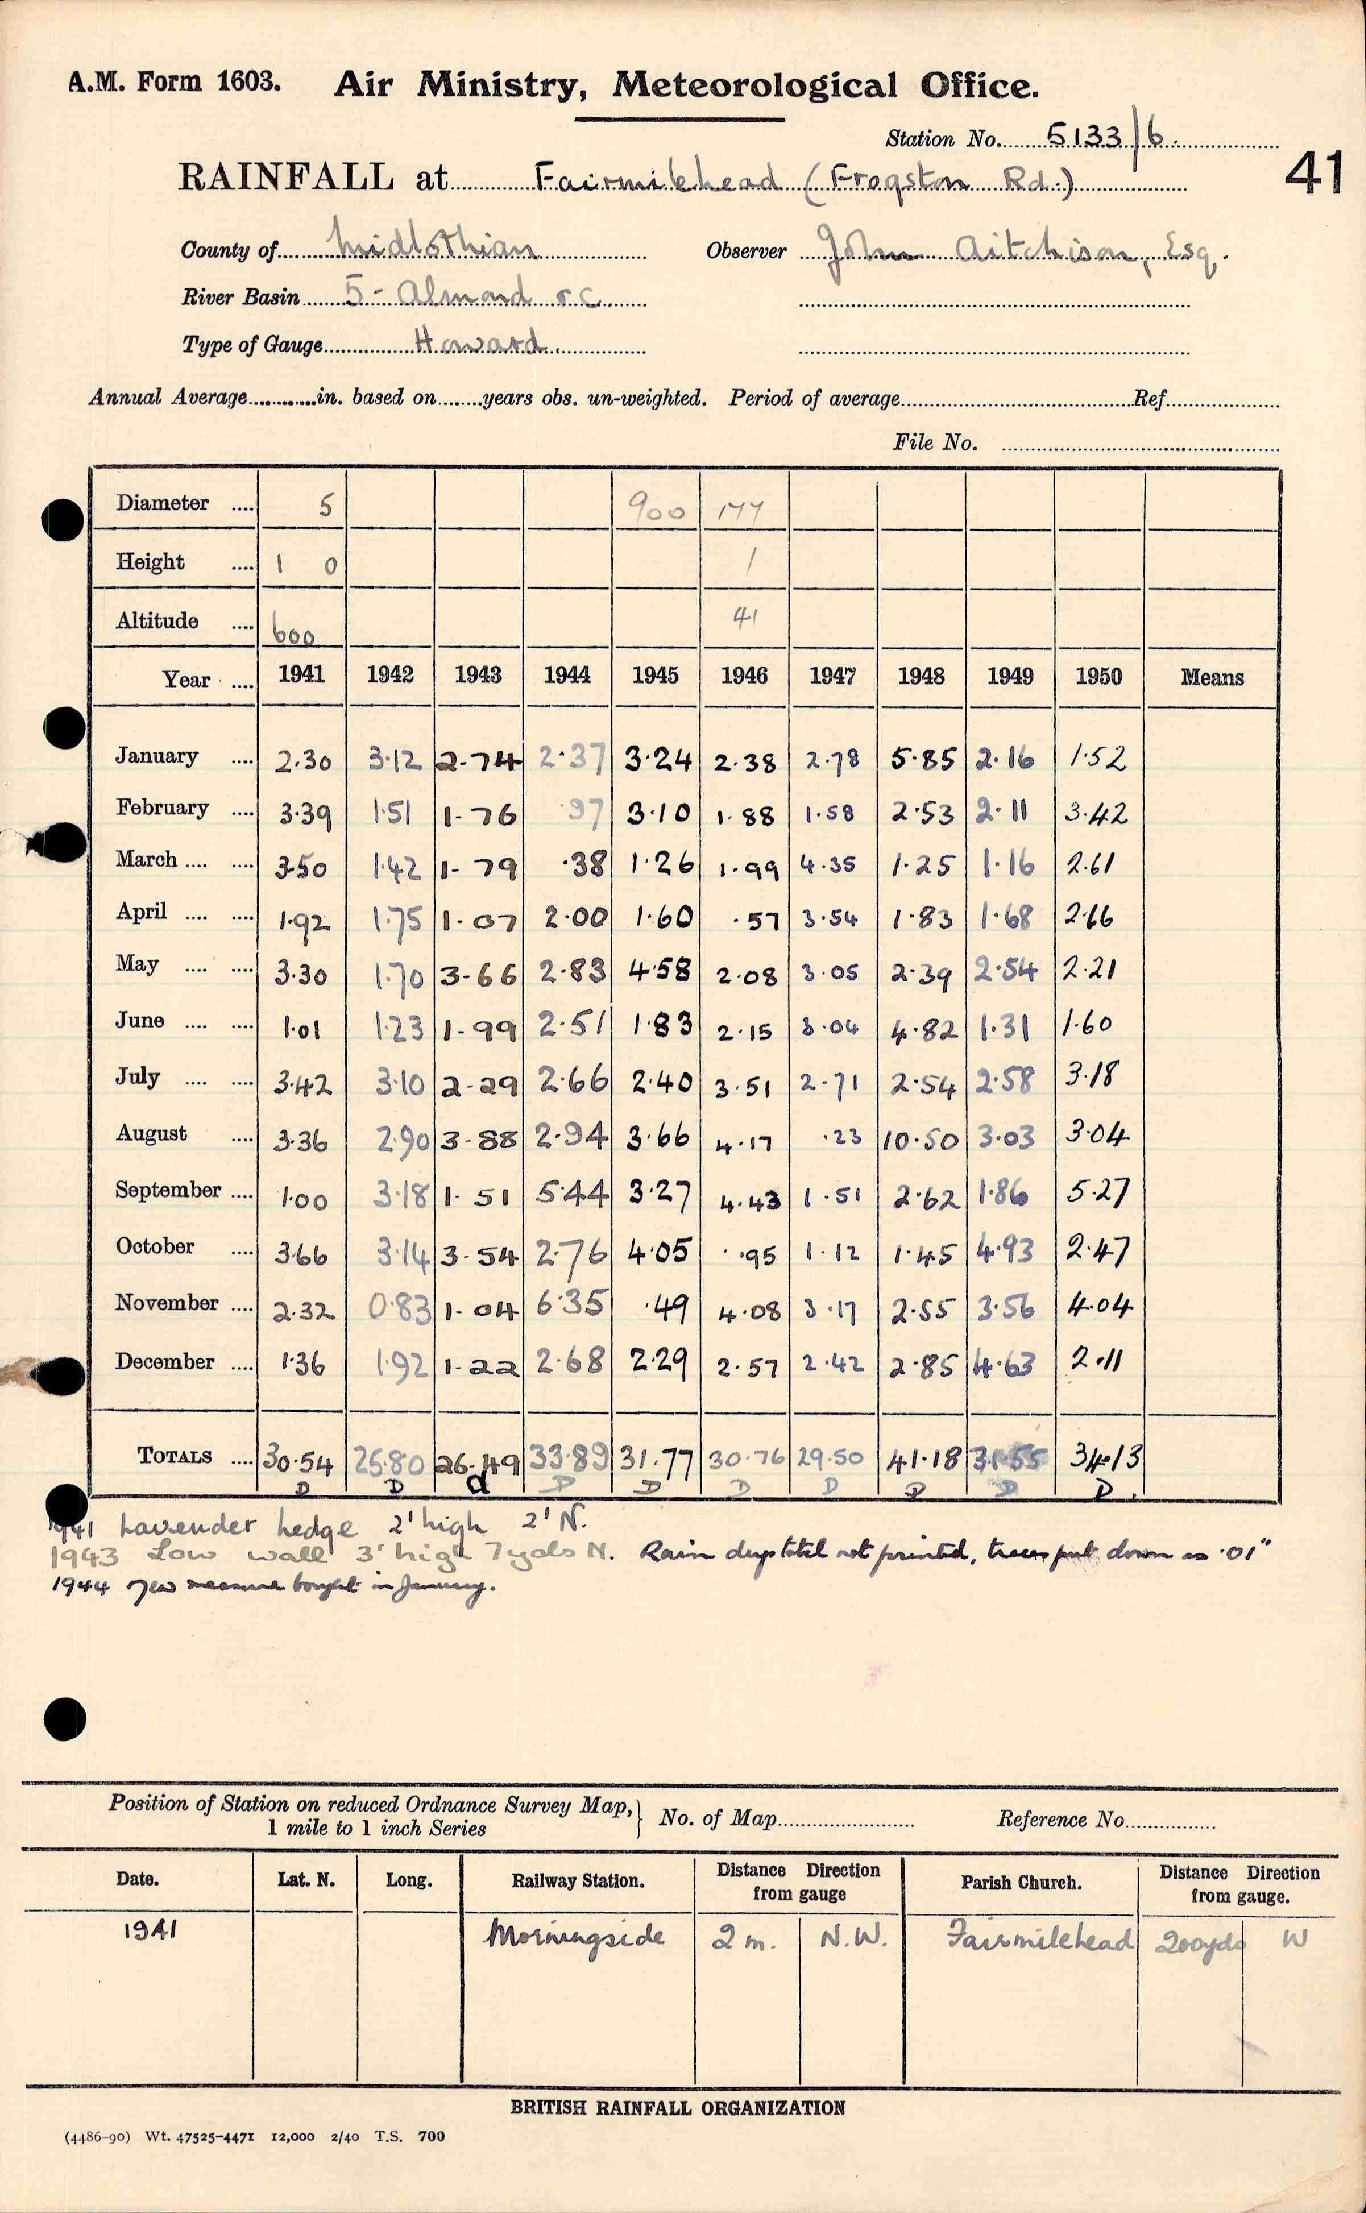 A.M. Form 1603. Air Ministry, Meteorological Office.
Station No. 5133/6.
41
RAINFALL at Fairmilehead (Frogston Rd.)
County of Midlothian Observer John Aitchison, Esq.
River Basin 5 - Almond r.c.
Type of Gauge Howard
Annual Average in. based on years obs. un-weighted. Period of average Ref
File No.
Diameter 5 900 177
Height 1 0 1
Altitude 600 41
Year 1941 1942 1943 1944 1945 1946 1947 1948 1949 1950 Means
January 2.30 3.12 2.74 2.37 3.24 2.38 2.78 5.85 2.16 1.52
February 3.39 1.51 1.76 .97 3.10 1.88 1.58 2.53 2.11 3.42
March 3.50 1.42 1.79 .38 1.26 1.99 4.35 1.25 1.16 2.61
April 1.92 1.75 1.07 2.00 1.60 .57 3.54 1.83 1.68 2.66
May 3.30 1.70 3.66 2.83 4.58 2.08 3.05 2.39 2.54 2.21
June 1.01 1.23 1.99 2.51 1.83 2.15 3.04 4.82 1.31 1.60
July 3.42 3.10 2.29 2.66 2.40 3.51 2.71 2.54 2.58 3.18
August 3.36 2.90 3.88 2.94 3.66 4.17 .23 10.50 3.03 3.04
September 1.00 3.18 1.51 5.44 3.27 4.43 1.51 2.62 1.86 5.27
October 3.66 3.14 3.54 2.76 4.05 .95 1.12 1.45 4.93 2.47
November 2.32 0.83 1.04 6.35 .49 4.08 3.17 2.55 3.56 4.04
December 1.36 1.92 1.22 2.68 2.29 2.57 2.42 2.85 4.63 2.11
TOTALS 30.54 25.80 26.49 33.89 31.77 30.76 29.50 41.18 31.55 34.13
D D d D D D D D D D.
1941 Lavender hedge 2' high 2' N.
1943 Low wall 3' high 7 yds N. Rain dup total not printed, traces put down as .01"
1944 New measure bought in January.
Position of Station on reduced Ordnance Survey Map, 1 mile to 1 inch Series } No. of Map Reference No.
Date. Lat. N. Long. Railway Station. Distance Direction from gauge Parish Church. Distance Direction from gauge.
1941 Morningside 2 m. N.W. Fairmilehead 200yds W
BRITISH RAINFALL ORGANIZATION
(4486-90) Wt. 47525-4471 12,000 2/40 T.S. 700